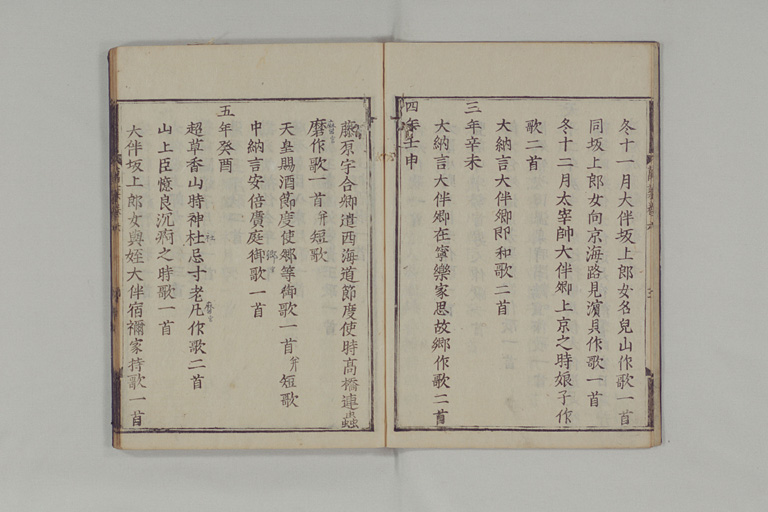 冬十一月大伴坂上郎女名兒山作歌一首
同坂上郎女向京海路見濱貝作歌一首
冬十二月太宰帥大伴卿上京之時娘子作
歌二首
大納言大伴卿即和歌二首
三年辛未
大納言大伴卿在寧樂家思故郷作歌二首
四年壬申
藤原宇合卿遣西海道節度使時高橋連蟲
麿作歌一首并短歌
天皇賜酒節度使郷等御歌一首并短歌
中納言安倍廣庭御歌一首
五年癸酉
超草香山時神杜忌寸老凡作歌二首
山上臣憶良沉痾之時歌一首
大伴坂上郎女與姪大伴宿禰家持歌一首